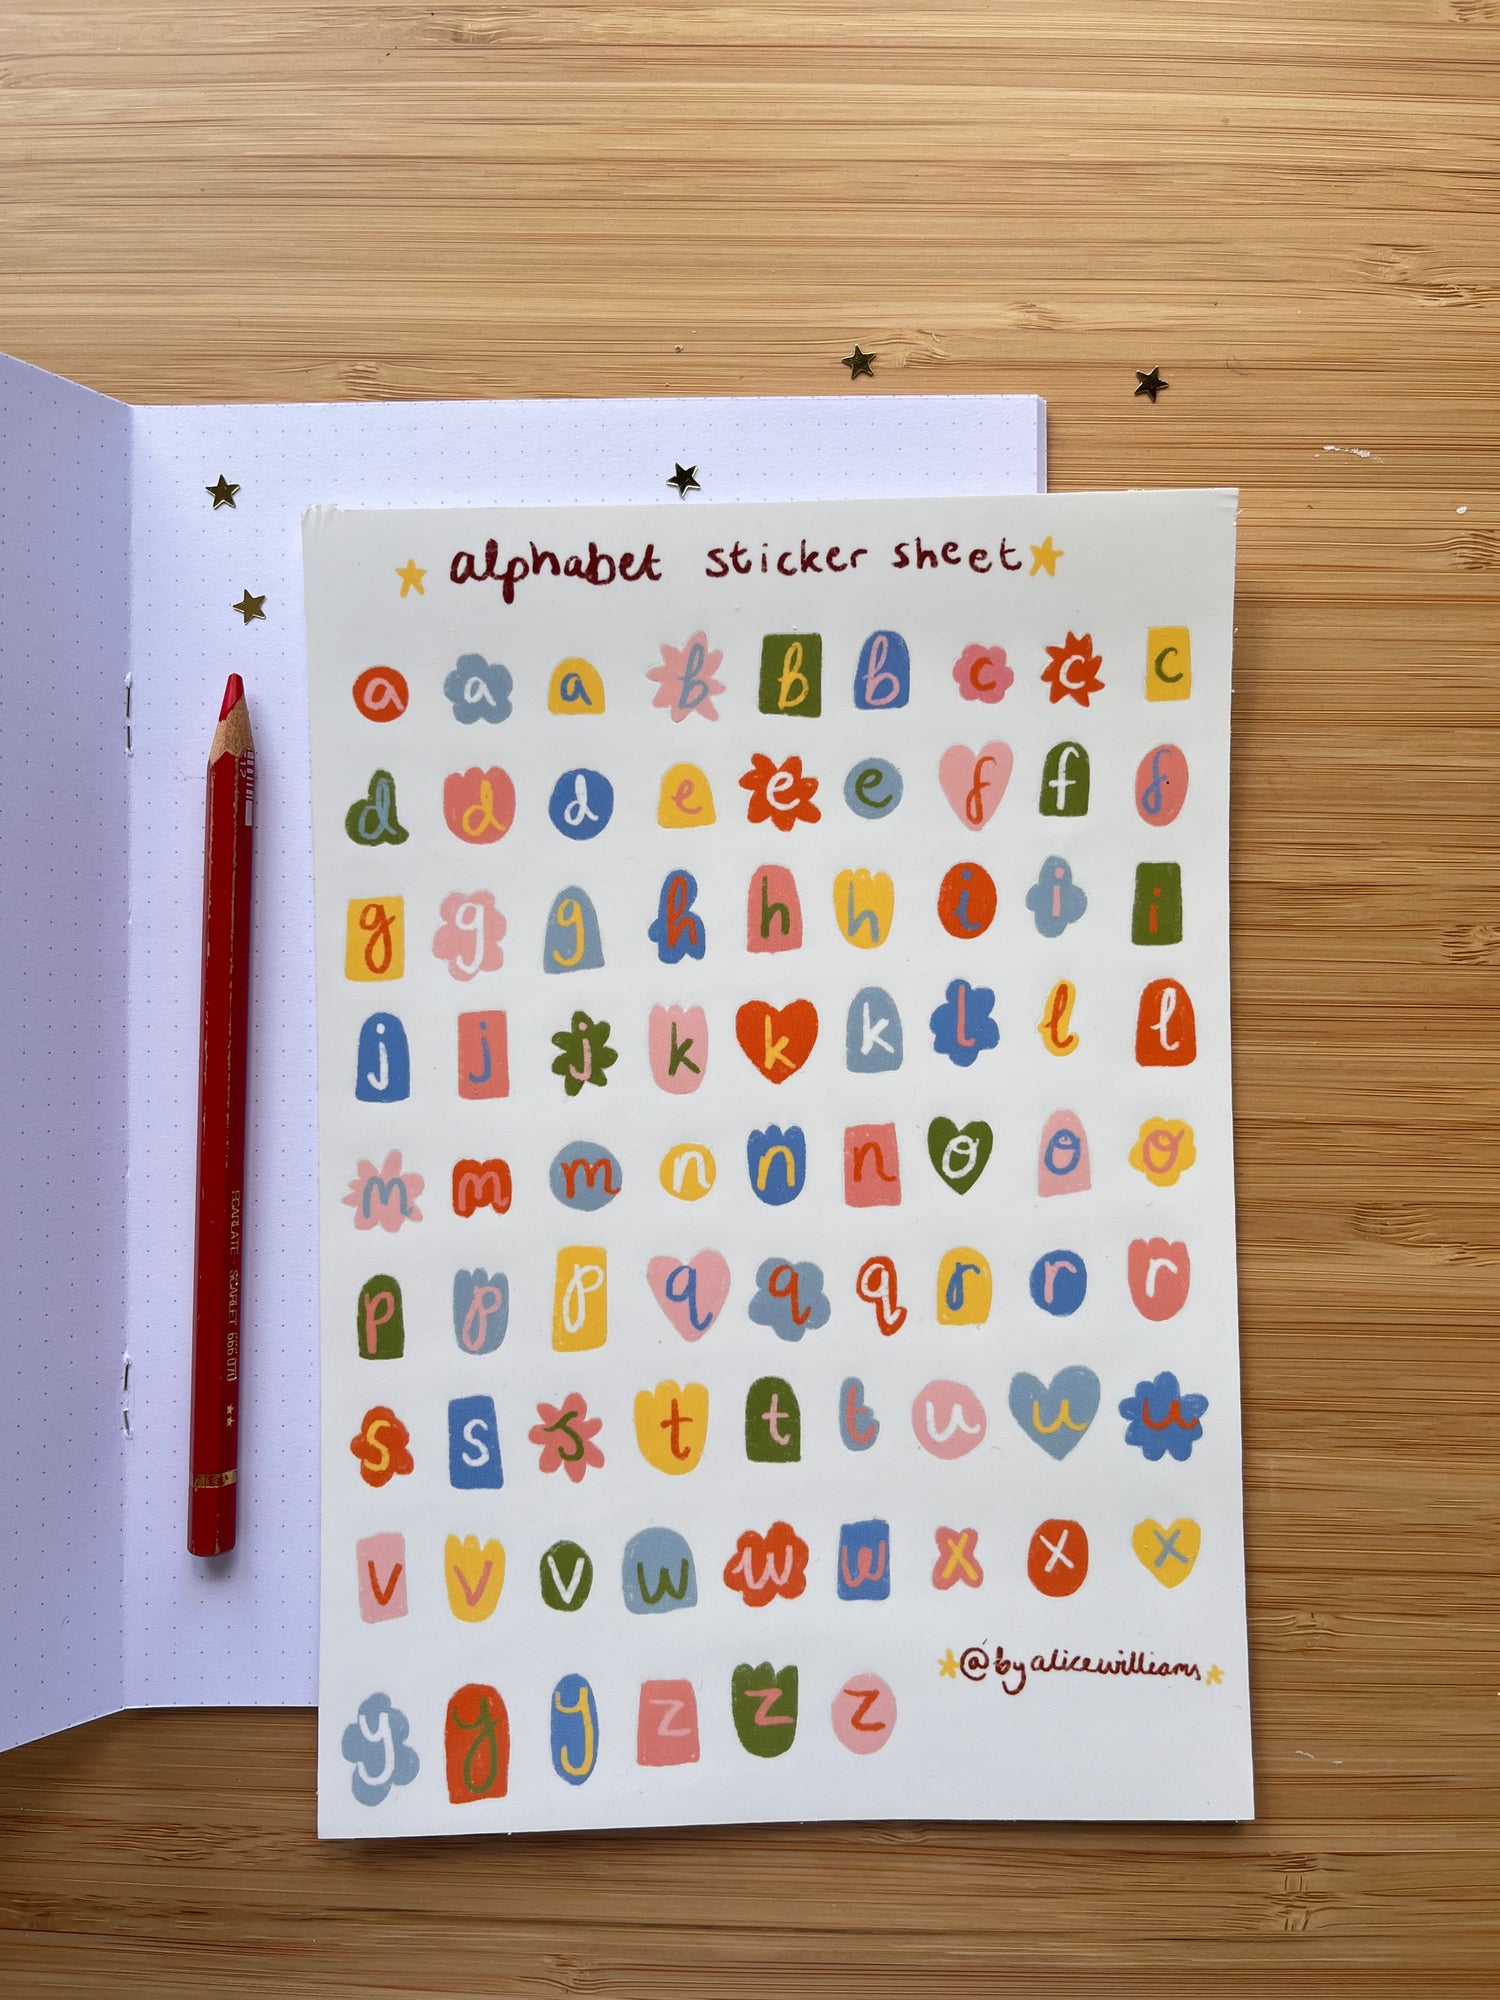 alphabet sticker sheet
a a a b b b c c c
d d d e e e f f f
g g g h h h i i i
j j j k k k l l l
m m m n n n o o o
p p p q q q r r r
s s s t t t u u u
v v v w w w x x x
@byalicewilliams
y y y z z z
ECARLATE SCARLET 666 070